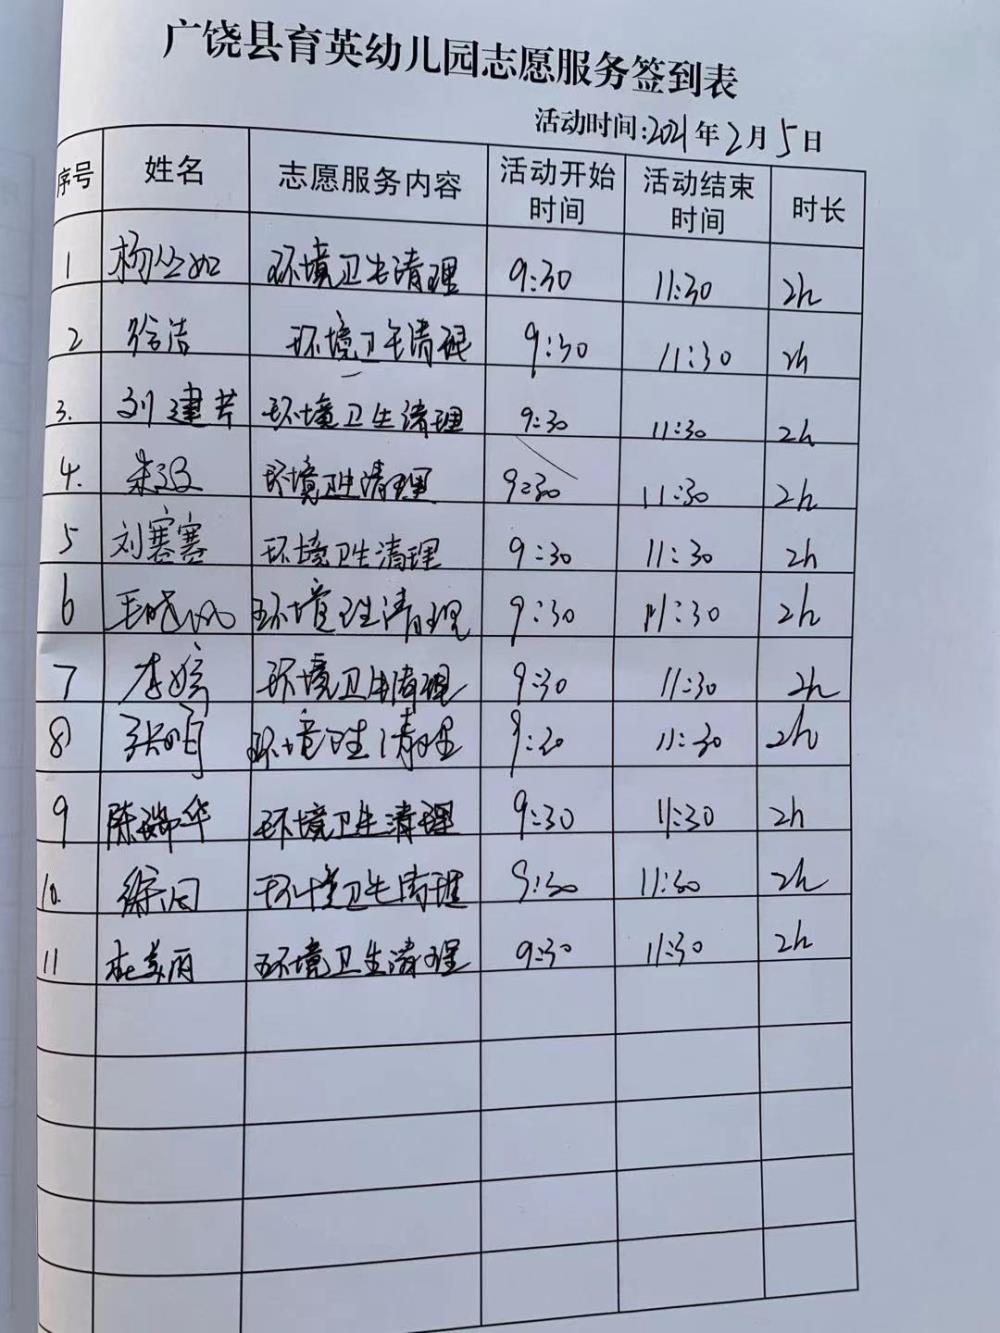 广饶县育英幼儿园志愿服务签到表
活动时间:2021年2月5日
序号 姓名 志愿服务内容 活动开始时间 活动结束时间 时长
1 杨 如 环境卫生清理 9:30 11:30 2h
2 徐洁 环境卫生清理 9:30 11:30 2h
3. 刘建芹 环境卫生清理 9:30 11:30 2h
4. 朱 环境卫生清理 9:30 11:30 2h
5 刘赛赛 环境卫生清理 9:30 11:30 2h
6 王晓 环境卫生清理 9:30 11:30 2h
7 李婷 环境卫生清理 9:30 11:30 2h
8 张明 环境卫生清理 9:30 11:30 2h
9 陈瑞华 环境卫生清理 9:30 11:30 2h
10. 徐 环境卫生清理 9:30 11:30 2h
11 杜美丽 环境卫生清理 9:30 11:30 2h